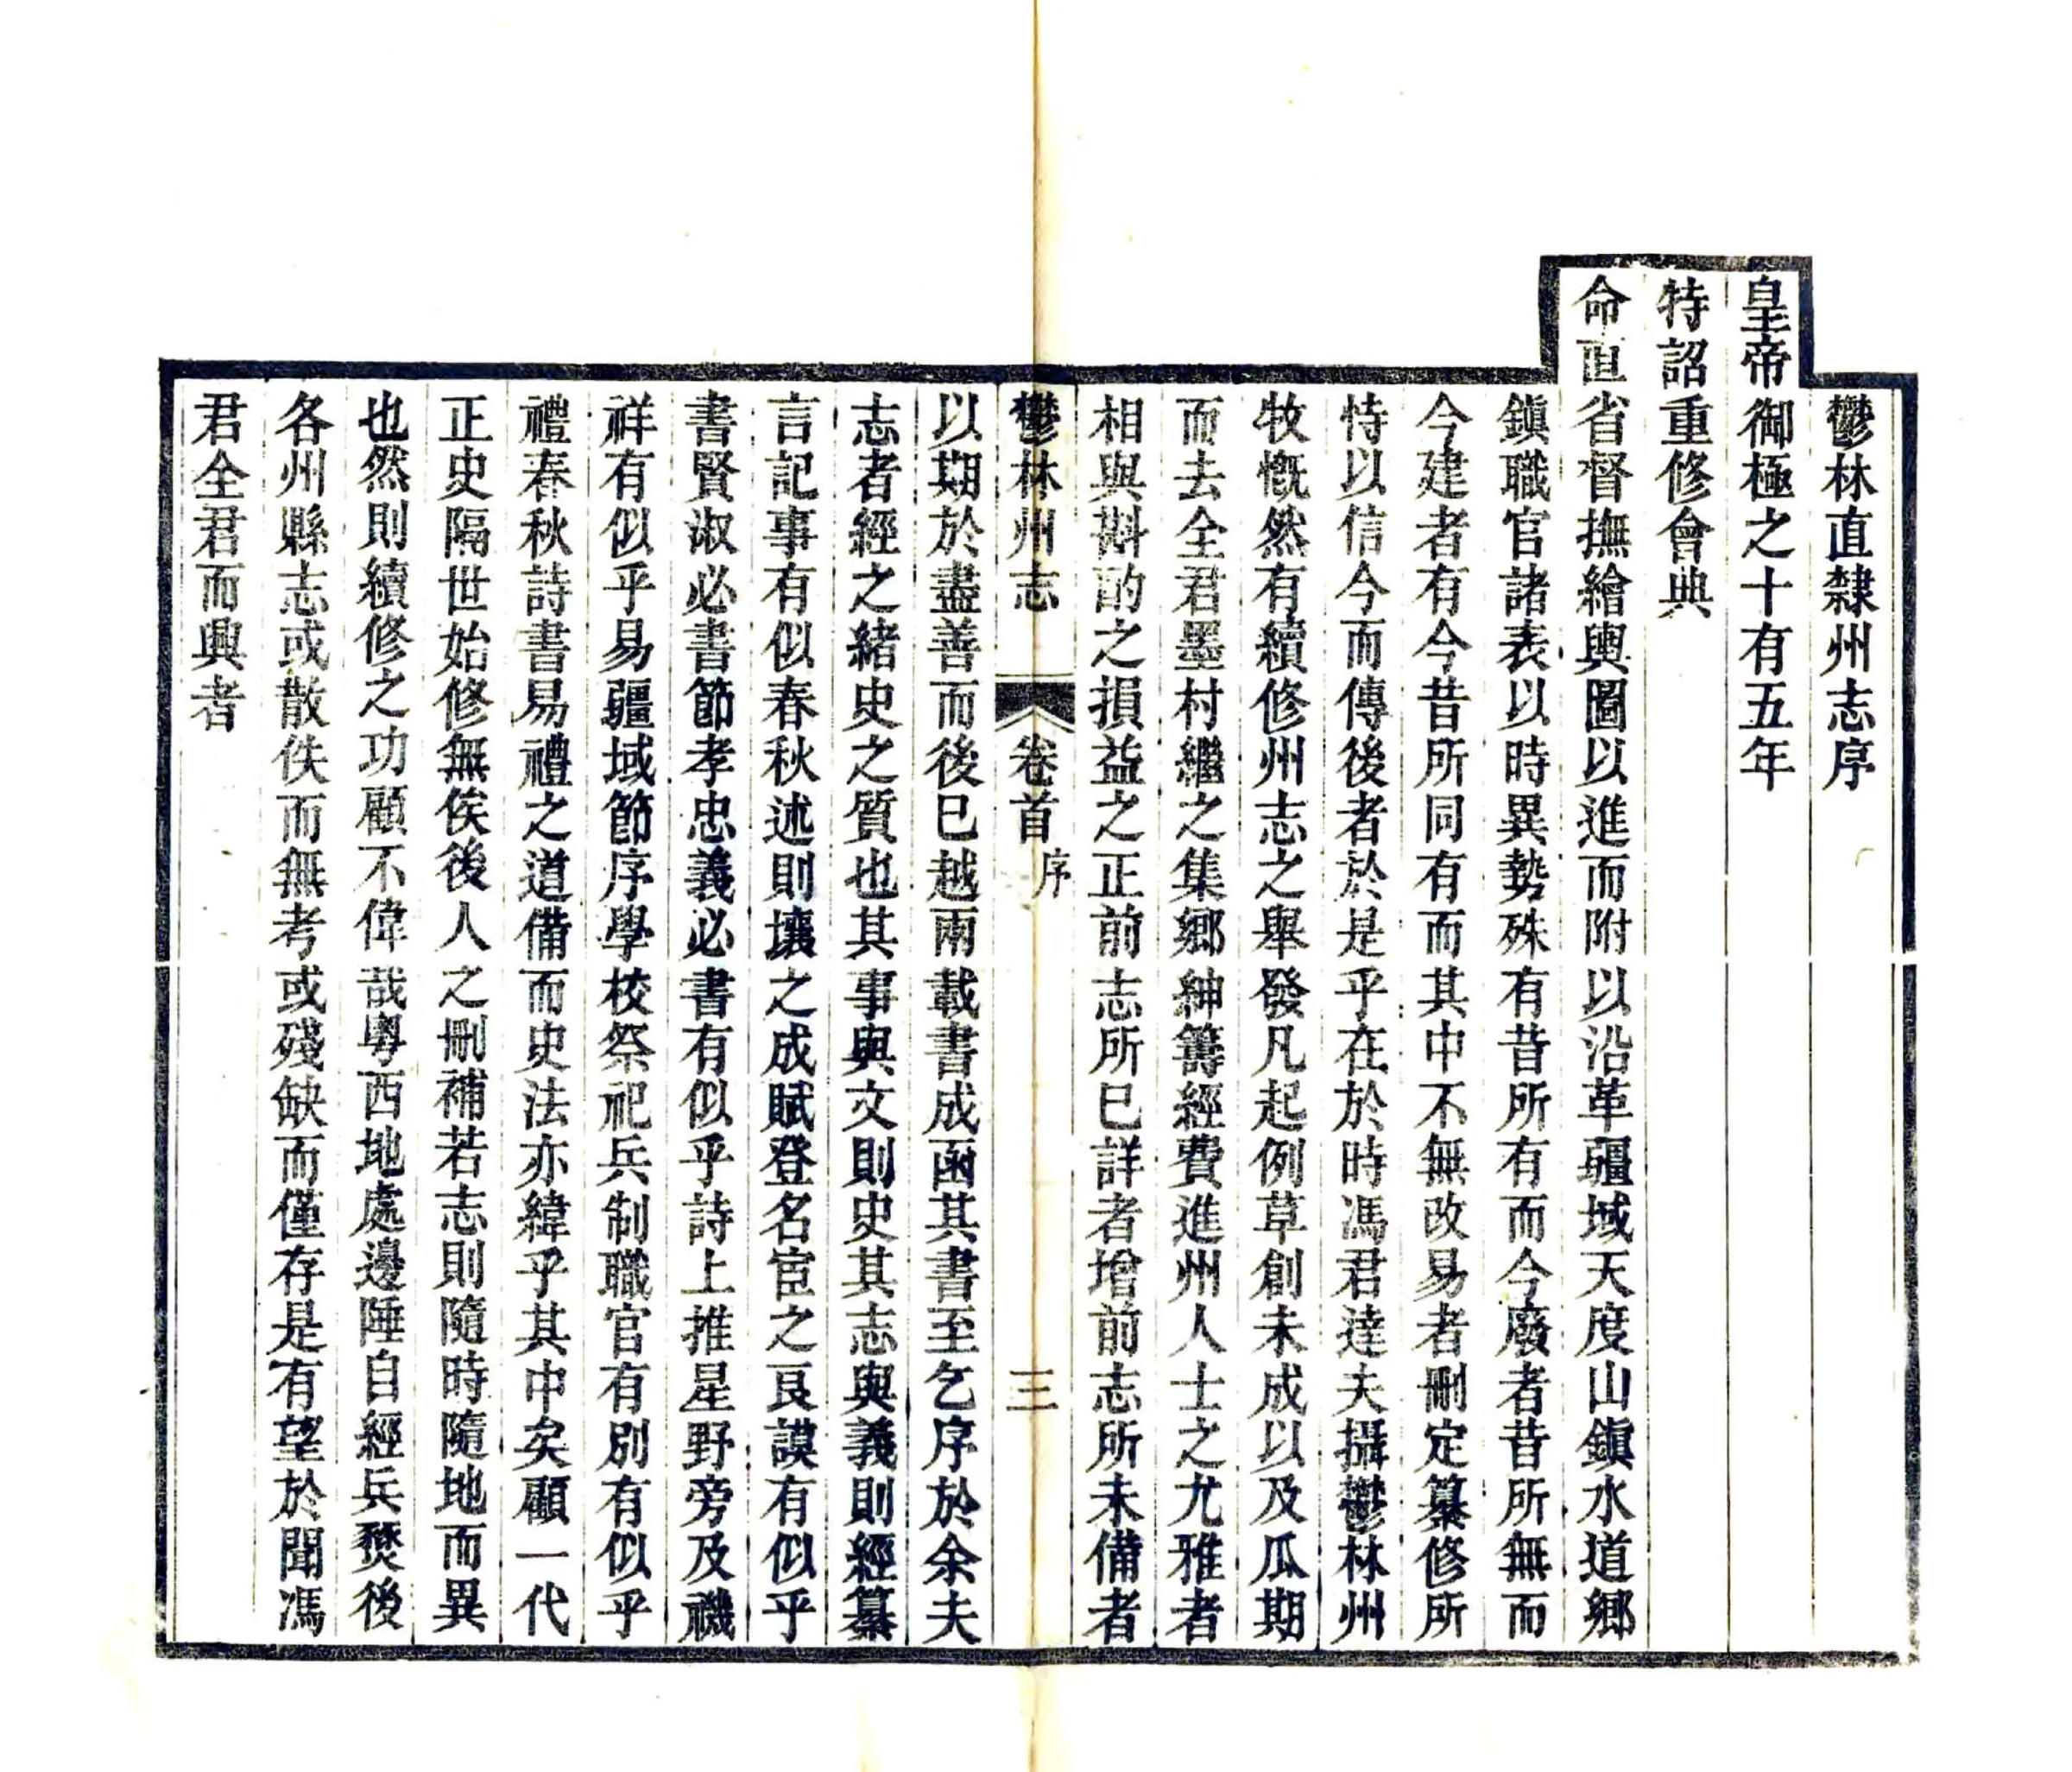 鬱林直隸州志序
皇帝御極之十有五年
特詔重修會典
命直省督撫繪輿圖以進而附以沿革疆域天度山鎮水道鄉
鎮職官諸表以時異勢殊有昔所有而今廢者昔所無而
今建者有今昔所同有而其中不無改易者刪定纂修所
恃以信今而傳後者於是乎在於時馮君達夫攝鬱林州
牧慨然有續修州志之舉發凡起例草創未成以及瓜期
而去全君墨村繼之集鄉紳籌經費進州人士之尤雅者
相與斟酌之損益之正前志所已詳者增前志所未備者
鬱林州志 卷首 序 三
以期於盡善而後已越兩載書成函其書至乞序於余夫
志者經之緒史之質也其事與文則史其志與義則經纂
言記事有似春秋述則壤之成賦登名宦之良謨有似乎
書賢淑必書節孝忠義必書有似乎詩上推星野旁及禨
祥有似乎易疆域節序學校祭祀兵制職官有別有似乎
禮春秋詩書易禮之道備而史法亦緯乎其中矣顧一代
正史隔世始修無俟後人之刪補若志則隨時隨地而異
也然則續修之功顧不偉哉粵西地處邊陲自經兵燹後
各州縣志或散佚而無考或殘缺而僅存是有望於聞馮
君全君而興者